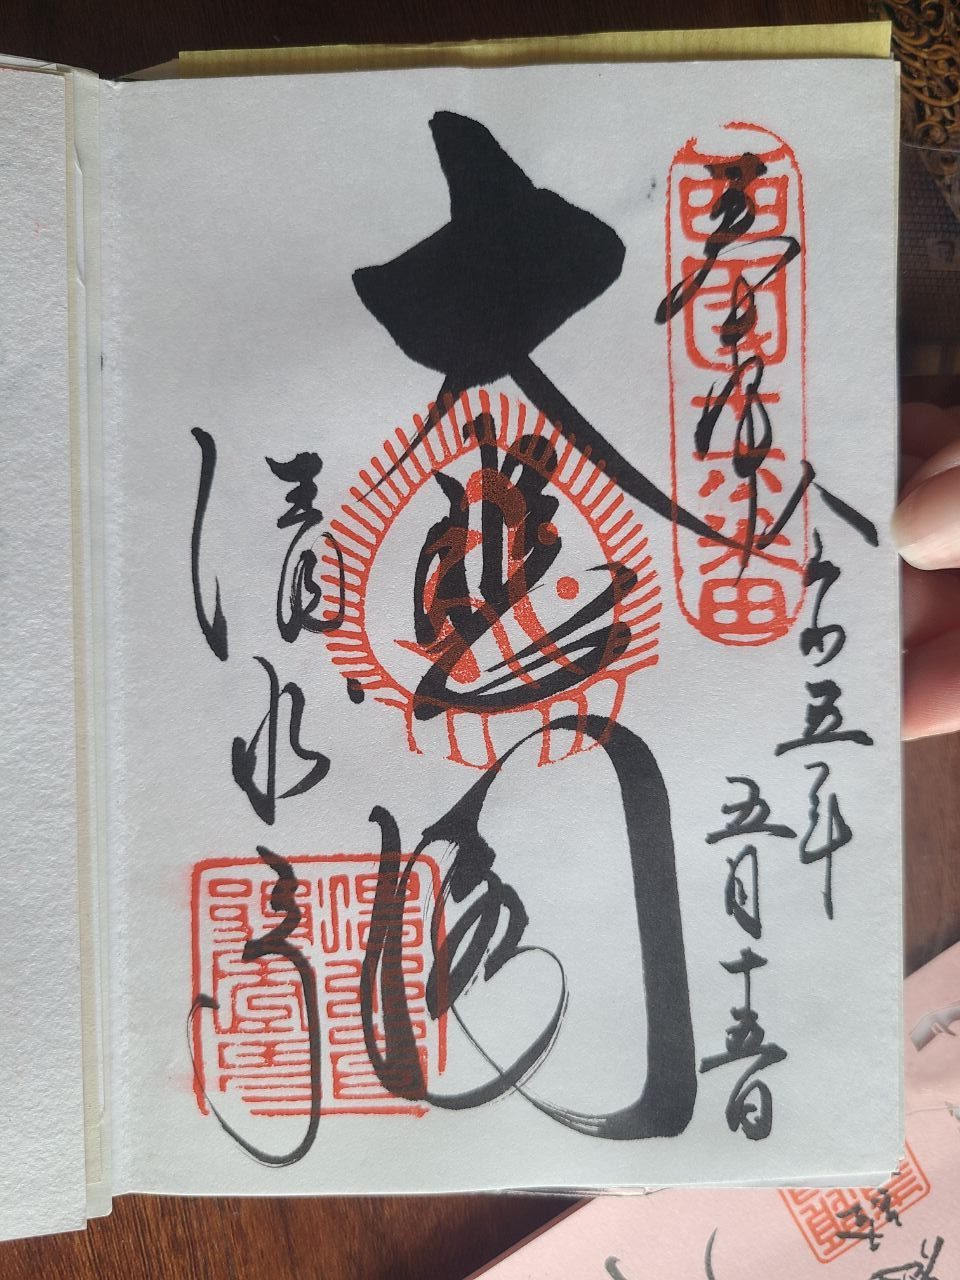 西国十六番
奉拝
令和五年
五月十五日
大悲閣
清水寺